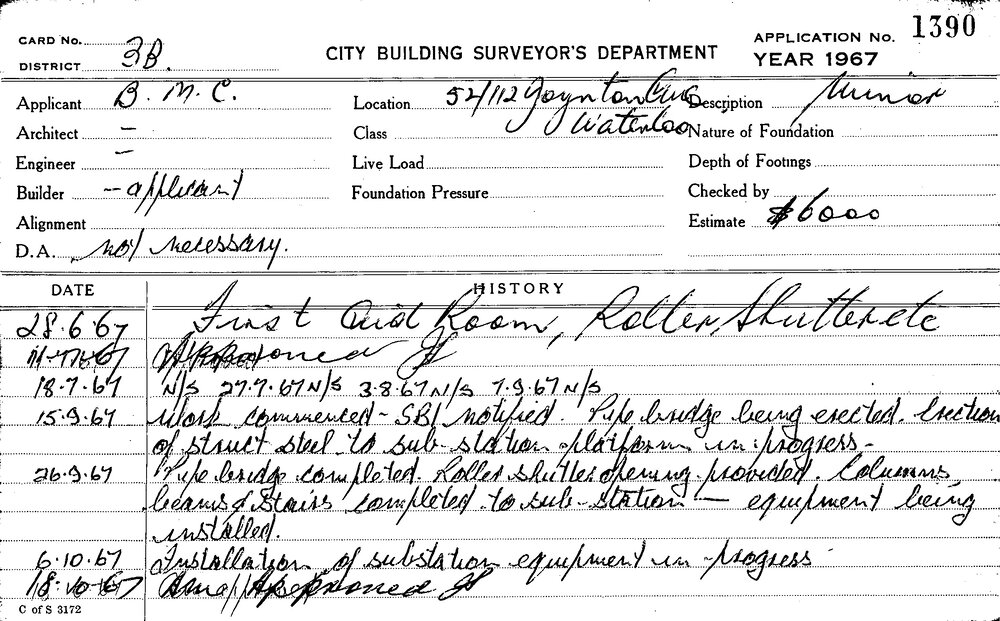 CARD No.
DISTRICT 3B.
CITY BUILDING SURVEYOR'S DEPARTMENT
APPLICATION No. 1390
YEAR 1967
Applicant B. M. C.
Architect —
Engineer —
Builder — applicant
Alignment
D.A. not necessary.
Location 52/112 Joynton Ave
Waterloo
Class
Live Load
Foundation Pressure
Description Minor
Nature of Foundation
Depth of Footings
Checked by
Estimate $6000
DATE HISTORY
28.6.67 First Aid Room, Roller Shutter etc
Approved
18.7.67 N/S 27.7.67 N/S 3.8.67 N/S 7.9.67 N/S
15.9.67 Work commenced - SBI notified. Pipe bridge being erected. Erection
of struct steel to sub-station platform in progress -
26.9.67 Pipe bridge completed. Roller shutter opening provided. Columns
beams & Stairs completed to sub-station — equipment being
installed.
6.10.67 Installation of substation equipment in progress
18.10.67
C of S 3172